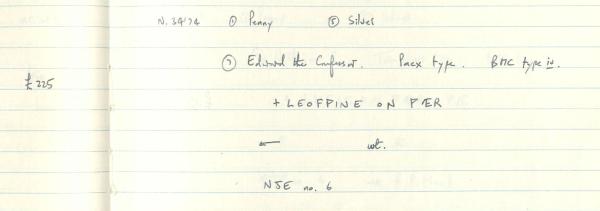 N. 3474 ① Penny ⑤ Silver
⑦ Edward the Confessor. Pacx type. BMC type iv.
£225
+ LEOFPINE ON PÆR
← wt.
NJE no. 6